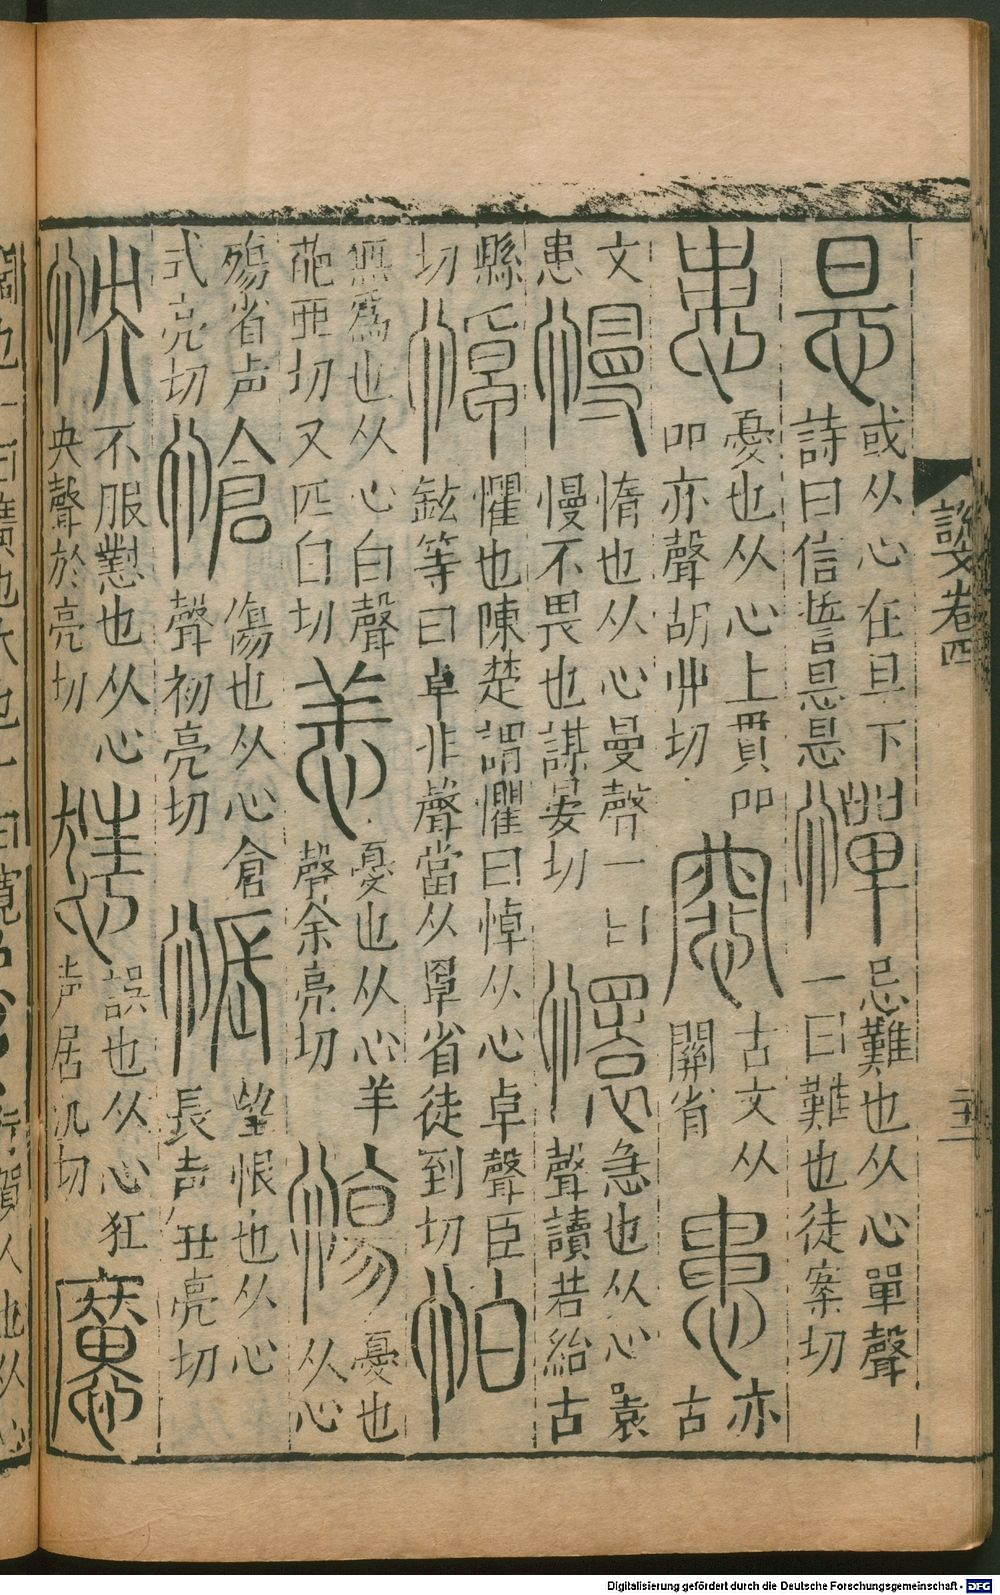 悬 或从心在旦下
詩曰信誓悬悬
憚 忌難也从心單聲
一曰難也徒案切
患 憂也从心上貫吅
吅亦聲胡丱切
古文从
關省
患 亦
古
文
患
慢 惰也从心曼聲一曰
慢不畏也謀晏切
懁 急也从心瞏
聲讀若絹古
縣
切
悼 懼也陳楚謂懼曰悼从心卓聲臣
鉉等曰卓非聲當从罩省徒到切
怕
無爲也从心白聲
葩亞切又匹白切
恙 憂也从心羊
聲余亮切
愓 憂也
从心
殤省声
式亮切
愴 傷也从心倉
聲初亮切
悵 望恨也从心
長声丑亮切
怏 不服懟也从心
央聲於亮切
誤也从心狂
声居况切
懬
說文卷四
行賀人也从心
Digitalisierung gefördert durch die Deutsche Forschungsgemeinschaft - DFG